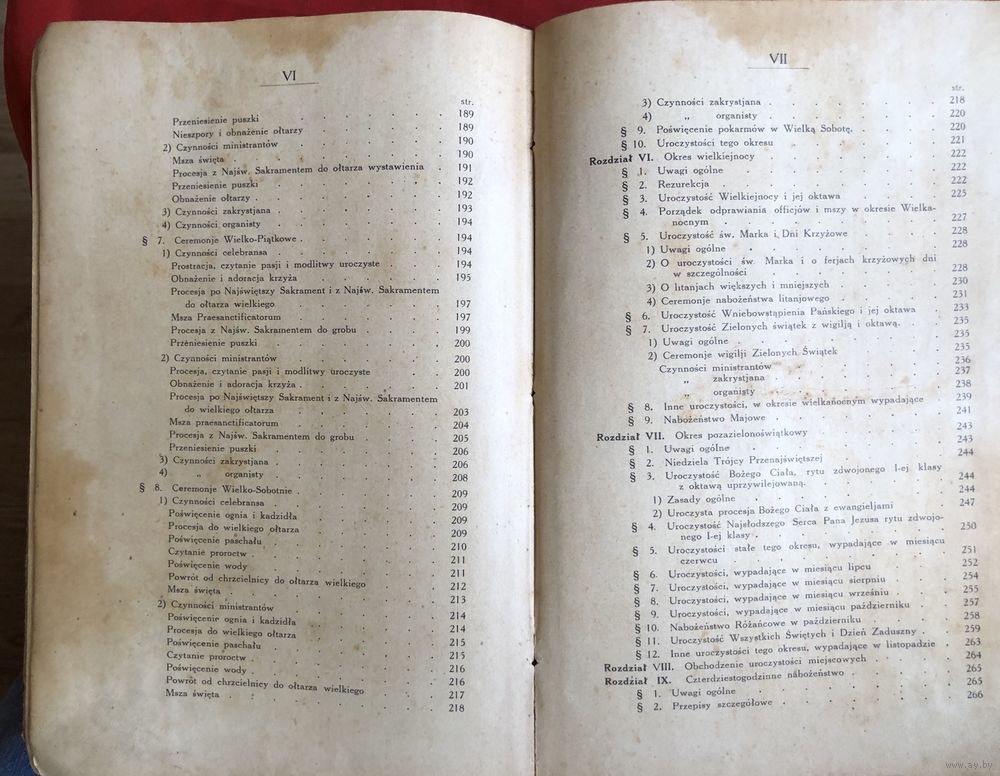 VI
str.
Przeniesienie puszki 189
Nieszpory i obnażenie ołtarzy 189
2) Czynności ministrantów 190
Msza święta 190
Procesja z Najśw. Sakramentem do ołtarza wystawienia 191
Przeniesienie puszki 192
Obnażenie ołtarzy 192
3) Czynności zakrystjana 193
4) Czynności organisty 194
§ 7. Ceremonje Wielko-Piątkowe 194
1) Czynności celebransa 194
Prostracja, czytanie pasji i modlitwy uroczyste 194
Obnażenie i adoracja krzyża 195
Procesja po Najświętszy Sakrament i z Najśw. Sakramentem
do ołtarza wielkiego 197
Msza Praesanctificatorum 197
Procesja z Najśw. Sakramentem do grobu 199
Przeniesienie puszki 200
2) Czynności ministrantów 200
Procesja, czytanie pasji i modlitwy uroczyste 200
Obnażenie i adoracja krzyża 201
Procesja po Najświętszy Sakrament i z Najśw. Sakramentem
do wielkiego ołtarza 203
Msza praesanctificatorum 204
Procesja z Najśw. Sakramentem do grobu 205
Przeniesienie puszki 206
3) Czynności zakrystjana 206
4) „ organisty 208
§ 8. Ceremonje Wielko-Sobotnie 209
1) Czynności celebransa 209
Poświęcenie ognia i kadzidła 209
Procesja do wielkiego ołtarza 209
Poświęcenie paschału 210
Czytanie proroctw 211
Poświęcenie wody 211
Powrót od chrzcielnicy do ołtarza wielkiego 212
Msza święta 213
2) Czynności ministrantów 214
Poświęcenie ognia i kadzidła 214
Procesja do wielkiego ołtarza 215
Poświęcenie paschału 215
Czytanie proroctw 216
Poświęcenie wody 216
Powrót od chrzcielnicy do ołtarza wielkiego 217
Msza święta 218
VII
str.
3) Czynności zakrystjana 218
4) „ organisty 220
§ 9. Poświęcenie pokarmów w Wielką Sobotę. 220
§ 10. Uroczystości tego okresu 221
Rozdział VI. Okres wielkiejnocy 222
§ 1. Uwagi ogólne 222
§ 2. Rezurekcja 222
§ 3. Uroczystość Wielkiejnocy i jej oktawa 225
§ 4. Porządek odprawiania officjów i mszy w okresie Wielka-
nocnym 227
§ 5. Uroczystość św. Marka i Dni Krzyżowe 228
1) Uwagi ogólne 228
2) O uroczystości św. Marka i o ferjach krzyżowych dni
w szczególności 228
3) O litanjach większych i mniejszych 230
4) Ceremonje nabożeństwa litanjowego 231
§ 6. Uroczystość Wniebowstąpienia Pańskiego i jej oktawa 233
§ 7. Uroczystość Zielonych świątek z wigilją i oktawą. 235
1) Uwagi ogólne 235
2) Ceremonje wigilji Zielonych Świątek 235
Czynności ministrantów 236
„ zakrystjana 237
„ organisty 238
§ 8. Inne uroczystości, w okresie wielkanocnym wypadające 239
§ 9. Nabożeństwo Majowe 241
Rozdział VII. Okres pozazielonoświątkowy 243
§ 1. Uwagi ogólne 243
§ 2. Niedziela Trójcy Przenajświętszej 244
§ 3. Uroczystość Bożego Ciała, rytu zdwojonego I-ej klasy
z oktawą uprzywilejowaną. 244
1) Zasady ogólne 244
2) Uroczysta procesja Bożego Ciała z ewangieljami 247
§ 4. Uroczystość Najsłodszego Serca Pana Jezusa rytu zdwojo-
nego I-ej klasy 250
§ 5. Uroczystości stałe tego okresu, wypadające w miesiącu
czerwcu 251
§ 6. Uroczystości, wypadające w miesiącu lipcu 252
§ 7. Uroczystości, wypadające w miesiącu sierpniu 254
§ 8. Uroczystości, wypadające w miesiącu wrześniu 255
§ 9. Uroczystości, wypadające w miesiącu październiku 257
§ 10. Nabożeństwo Różańcowe w październiku 258
§ 11. Uroczystość Wszystkich Świętych i Dzień Zaduszny 259
§ 12. Inne uroczystości tego okresu, wypadające w listopadzie 263
Rozdział VIII. Obchodzenie uroczystości miejscowych 264
Rozdział IX. Czterdziestogodzinne nabożeństwo 265
§ 1. Uwagi ogólne 265
§ 2. Przepisy szczegółowe 266
www.ay.by